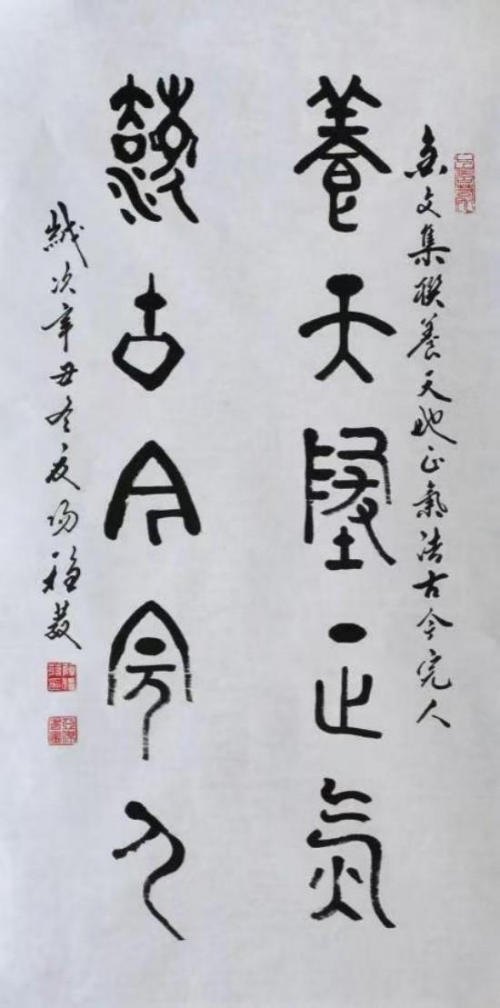 金文集聯養天地正氣法古今完人
養天地正氣
灋古今完人
歲次辛丑冬夜